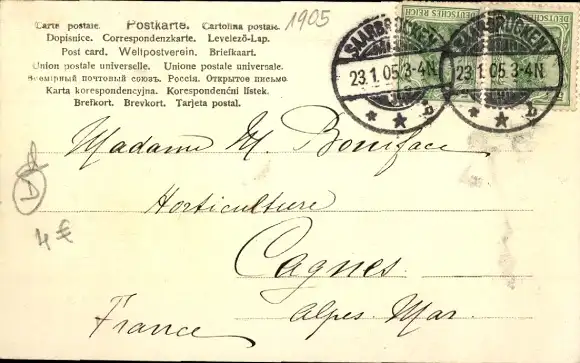 Carte postale. Postkarte. Cartolina postale. 1905
Dopisnice. Correspondenzkarte. Levelező-Lap.
Post card. Weltpostverein. Briefkaart.
Union postale universelle. Unione postale universale.
Всемірный почтовый союзъ. Россія. Открытое письмо.
Karta korespondencyjna. Korespondenční lístek.
Brefkort. Brevkort. Tarjeta postal.
DEUTSCHES REICH DEUTSCHES REICH
SAARBRÜCKEN SAARBRÜCKEN
23.1.05.3-4N. 23.1.05.3-4N
* * b * * b
Madame M. Boniface
Horticulture
Cagnes
Alpes. Mar.
France
4€